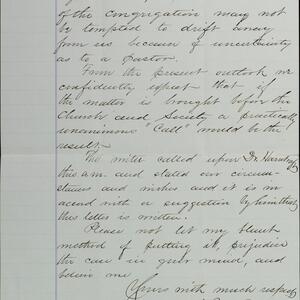 of the congregation may not
be tempted to drift away
from us because of uncertainty
as to a pastor.
From the present outlook we
confidently expect that if
the matter is brought before the
Church and Society a practically
unanimous "Call" would be the
result.
The writer called upon Dr.
this a.m. and stated our circum-
stances and wishes and it is in
accord with a suggestion by him that
this letter is written.
Please not let my blunt
method of putting it, prejudice
the case in your mind, and
believe me
Yours with much respect